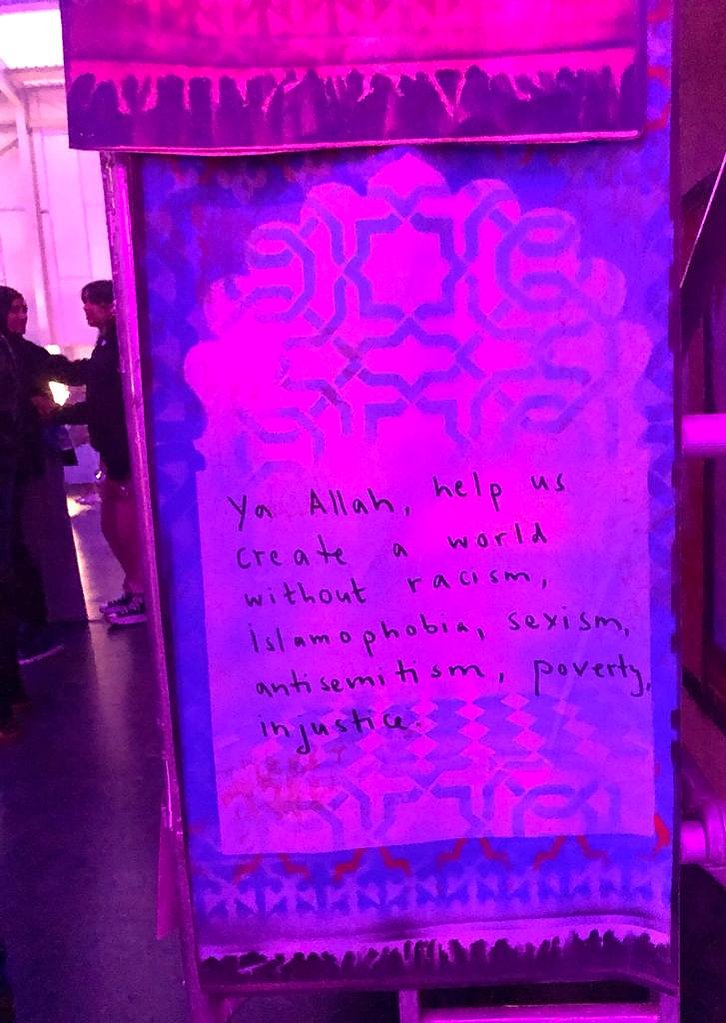 Ya Allah, help us
create a world
without racism,
islamophobia, sexism,
antisemitism, poverty,
injustice.